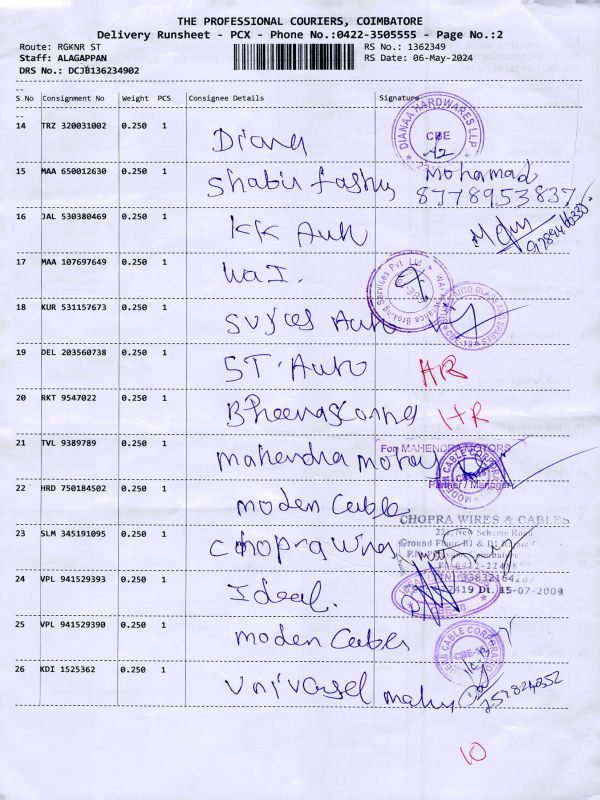 THE PROFESSIONAL COURIERS, COIMBATORE
Delivery Runsheet - PCX - Phone No.:0422-3505555 - Page No.:2
Route: RGKNR ST RS No.: 1362349
Staff: ALAGAPPAN RS Date: 06-May-2024
DRS No.: DCJB136234902
S No Consignment No Weight PCS Consignee Details Signature
14 TRZ 320031002 0.250 1
Diana
DIANAA HARDWARES LLP
CBE
15 MAA 650012630 0.250 1
Shabir Mohamad
8778953837
16 JAL 530380469 0.250 1
KK Auto
17 MAA 107697649 0.250 1
WaI.
18 KUR 531157673 0.250 1
Auto
19 DEL 203560738 0.250 1
ST. Auto HR
20 RKT 9547022 0.250 1
HR
21 TVL 9389789 0.250 1
For MAHENDRA MOTORS
mahendra motors
Partner / Manager
22 HRD 750184502 0.250 1
moden Cable
23 SLM 345191095 0.250 1
CHOPRA WIRES & CABLES
New Scheme Road
Ground Floor, B1 &
Chopra wires
24 VPL 941529393 0.250 1
Dt. 15-07-2009
Ideal.
25 VPL 941529390 0.250 1
moden Cables
CABLE CORPORATION
26 KDI 1525362 0.250 1
10